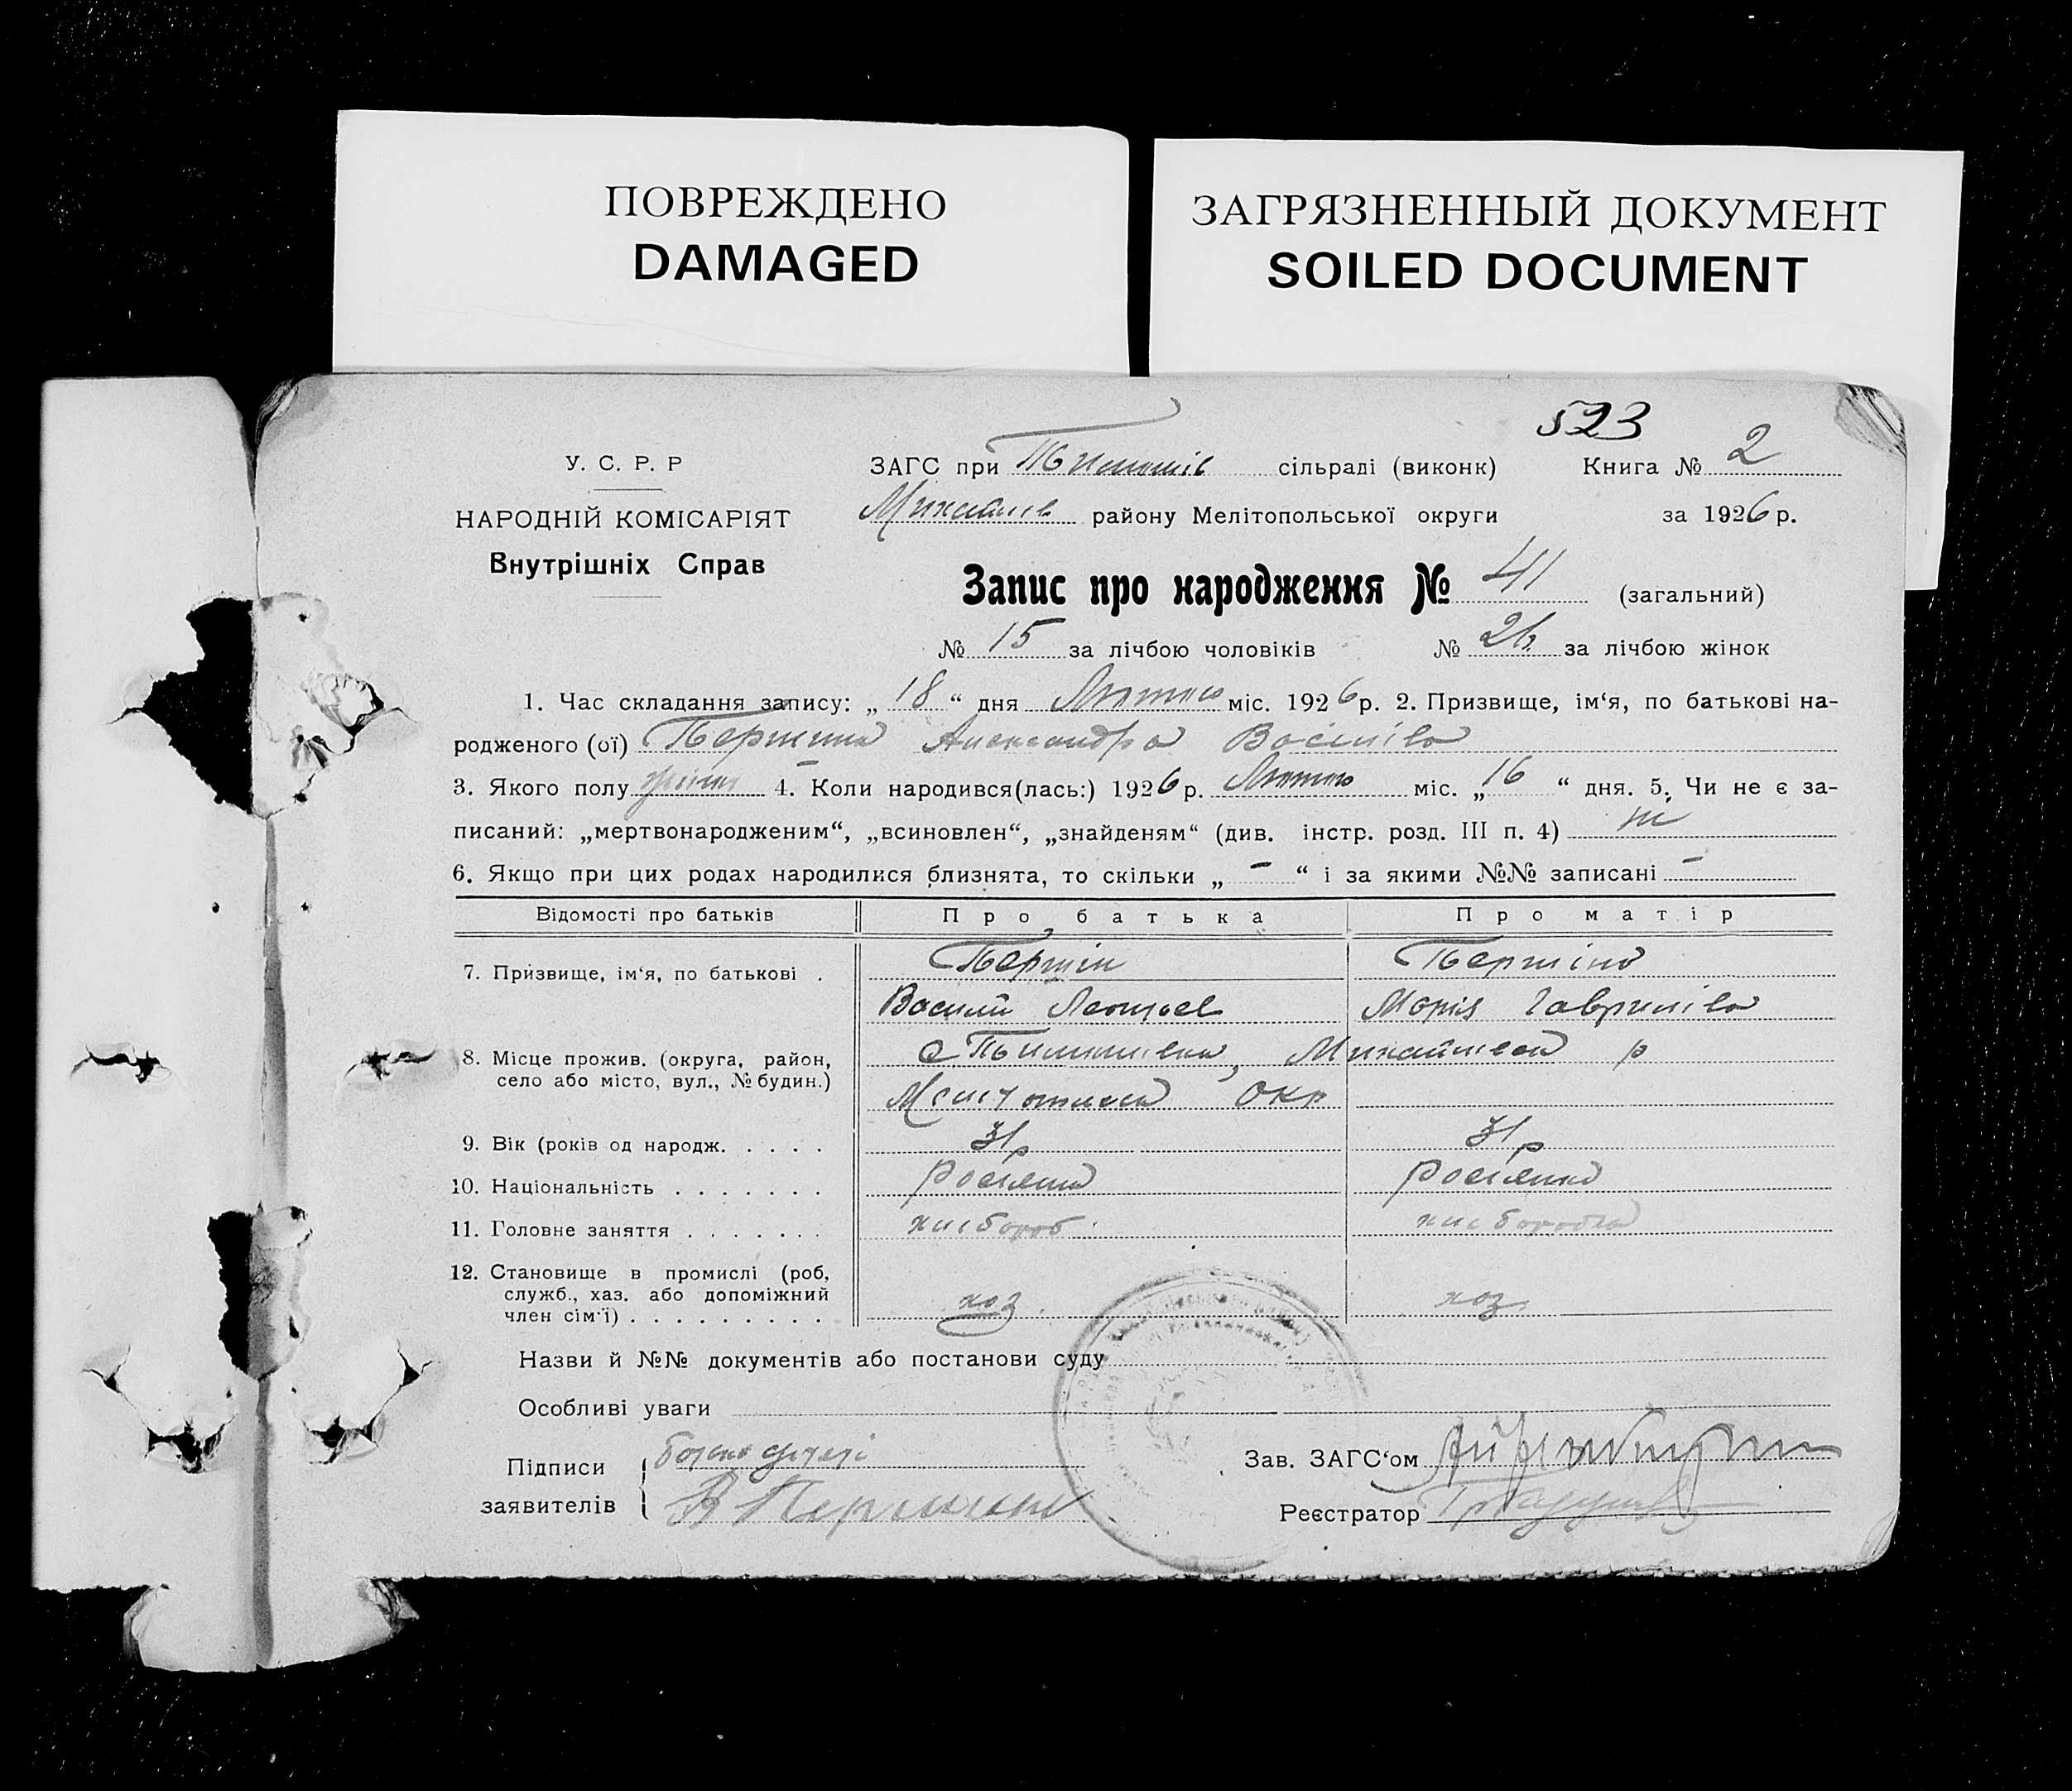 ПОВРЕЖДЕНО
DAMAGED
ЗАГРЯЗНЕННЫЙ ДОКУМЕНТ
SOILED DOCUMENT
523
У. С. Р. Р
НАРОДНІЙ КОМІСАРІЯТ
Внутрішніх Справ
ЗАГС при Тимошів сільраді (виконк) Книга № 2
Михайлів району Мелітопольської округи за 1926 р.
Запис про народження № 41 (загальний)
№ 15 за лічбою чоловіків № 26 за лічбою жінок
1. Час складання запису: „ 18 “ дня Лютого міс. 1926 р. 2. Призвище, ім‘я, по батькові на-
родженого (ої) Першина Александра Васіліва
3. Якого полу жіноч 4. Коли народився(лась:) 1926 р. Лютого міс. „ 16 “ дня. 5. Чи не є за-
писаний: „мертвонародженим“, „всиновлен“, „знайденям“ (див. інстр. розд. III п. 4) ні
6. Якщо при цих родах народилися близнята, то скільки „ – “ і за якими №№ записані –
Відомості про батьків Про батька Про матір
7. Призвище, ім‘я, по батькові . Першін Першіна
Василій Леонтьев Марія Гавриліва
8. Місце прожив. (округа, район, с Тимошівка, Михайлівськ р
село або місто, вул., № будин.) Меліт Окр
9. Вік (років од народж. . . . . 31 р 31 р
10. Національність . . . . . . . росіянин росіянка
11. Головне заняття . . . . . . . хлібороб хліборобка
12. Становище в промислі (роб,
служб., хаз. або допоміжний
член сім‘ї) . . . . . . . . . хоз. хоз.
Назви й №№ документів або постанови суду
Особливі уваги
Підписи
заявителів В Першин
Зав. ЗАГС‘ом
Реєстратор